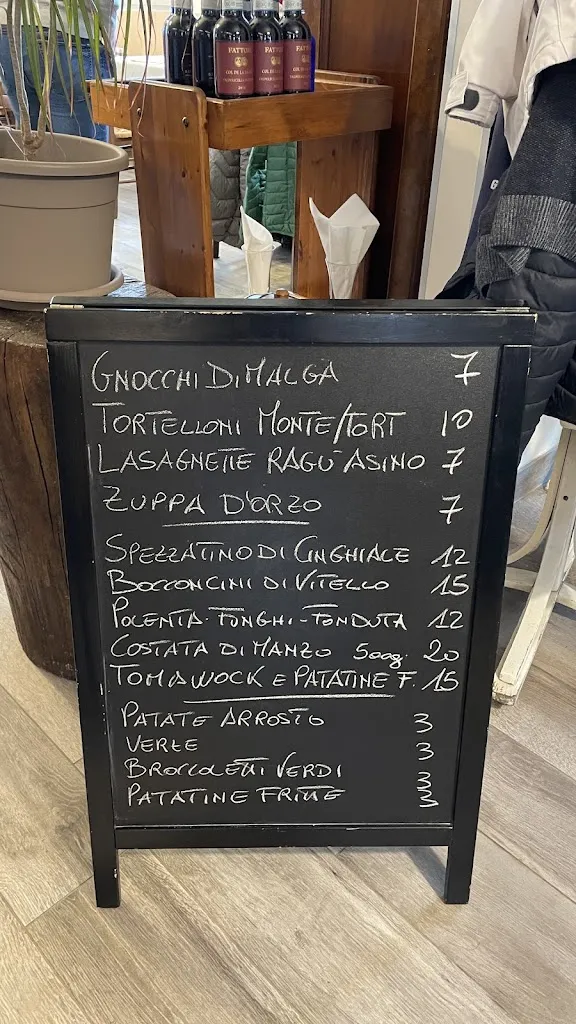 FATTOR
FATT
FATTO
GNOCCHI DI MALGA 7
TORTELLONI MONTE/TORT 10
LASAGNETTE RAGÙ ASINO 7
ZUPPA D'ORZO 7
SPEZZATINO DI CINGHIALE 12
BOCCONCINI DI VITELLO 15
POLENTA-FUNGHI-FONDUTA 12
COSTATA DI MANZO 500g. 20
TOMAWOCK E PATATINE F. 15
PATATE ARROSTO 3
VERZE 3
BROCCOLETTI VERDI 3
PATATINE FRITTE 3